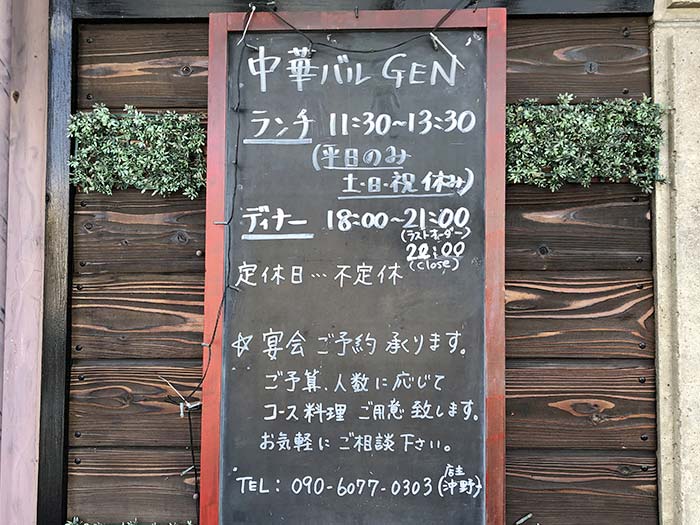 中華バル GEN
ランチ 11:30~13:30
(平日のみ
土・日・祝 休み)
ディナー 18:00~21:00
(ラストオーダー)
22:00
(Close)
定休日…不定休
☆宴会 ご予約 承ります。
ご予算、人数に応じて
コース料理 ご用意 致します。
お気軽に ご相談 下さい。
TEL: 090-6077-0303 (店主 沖野)